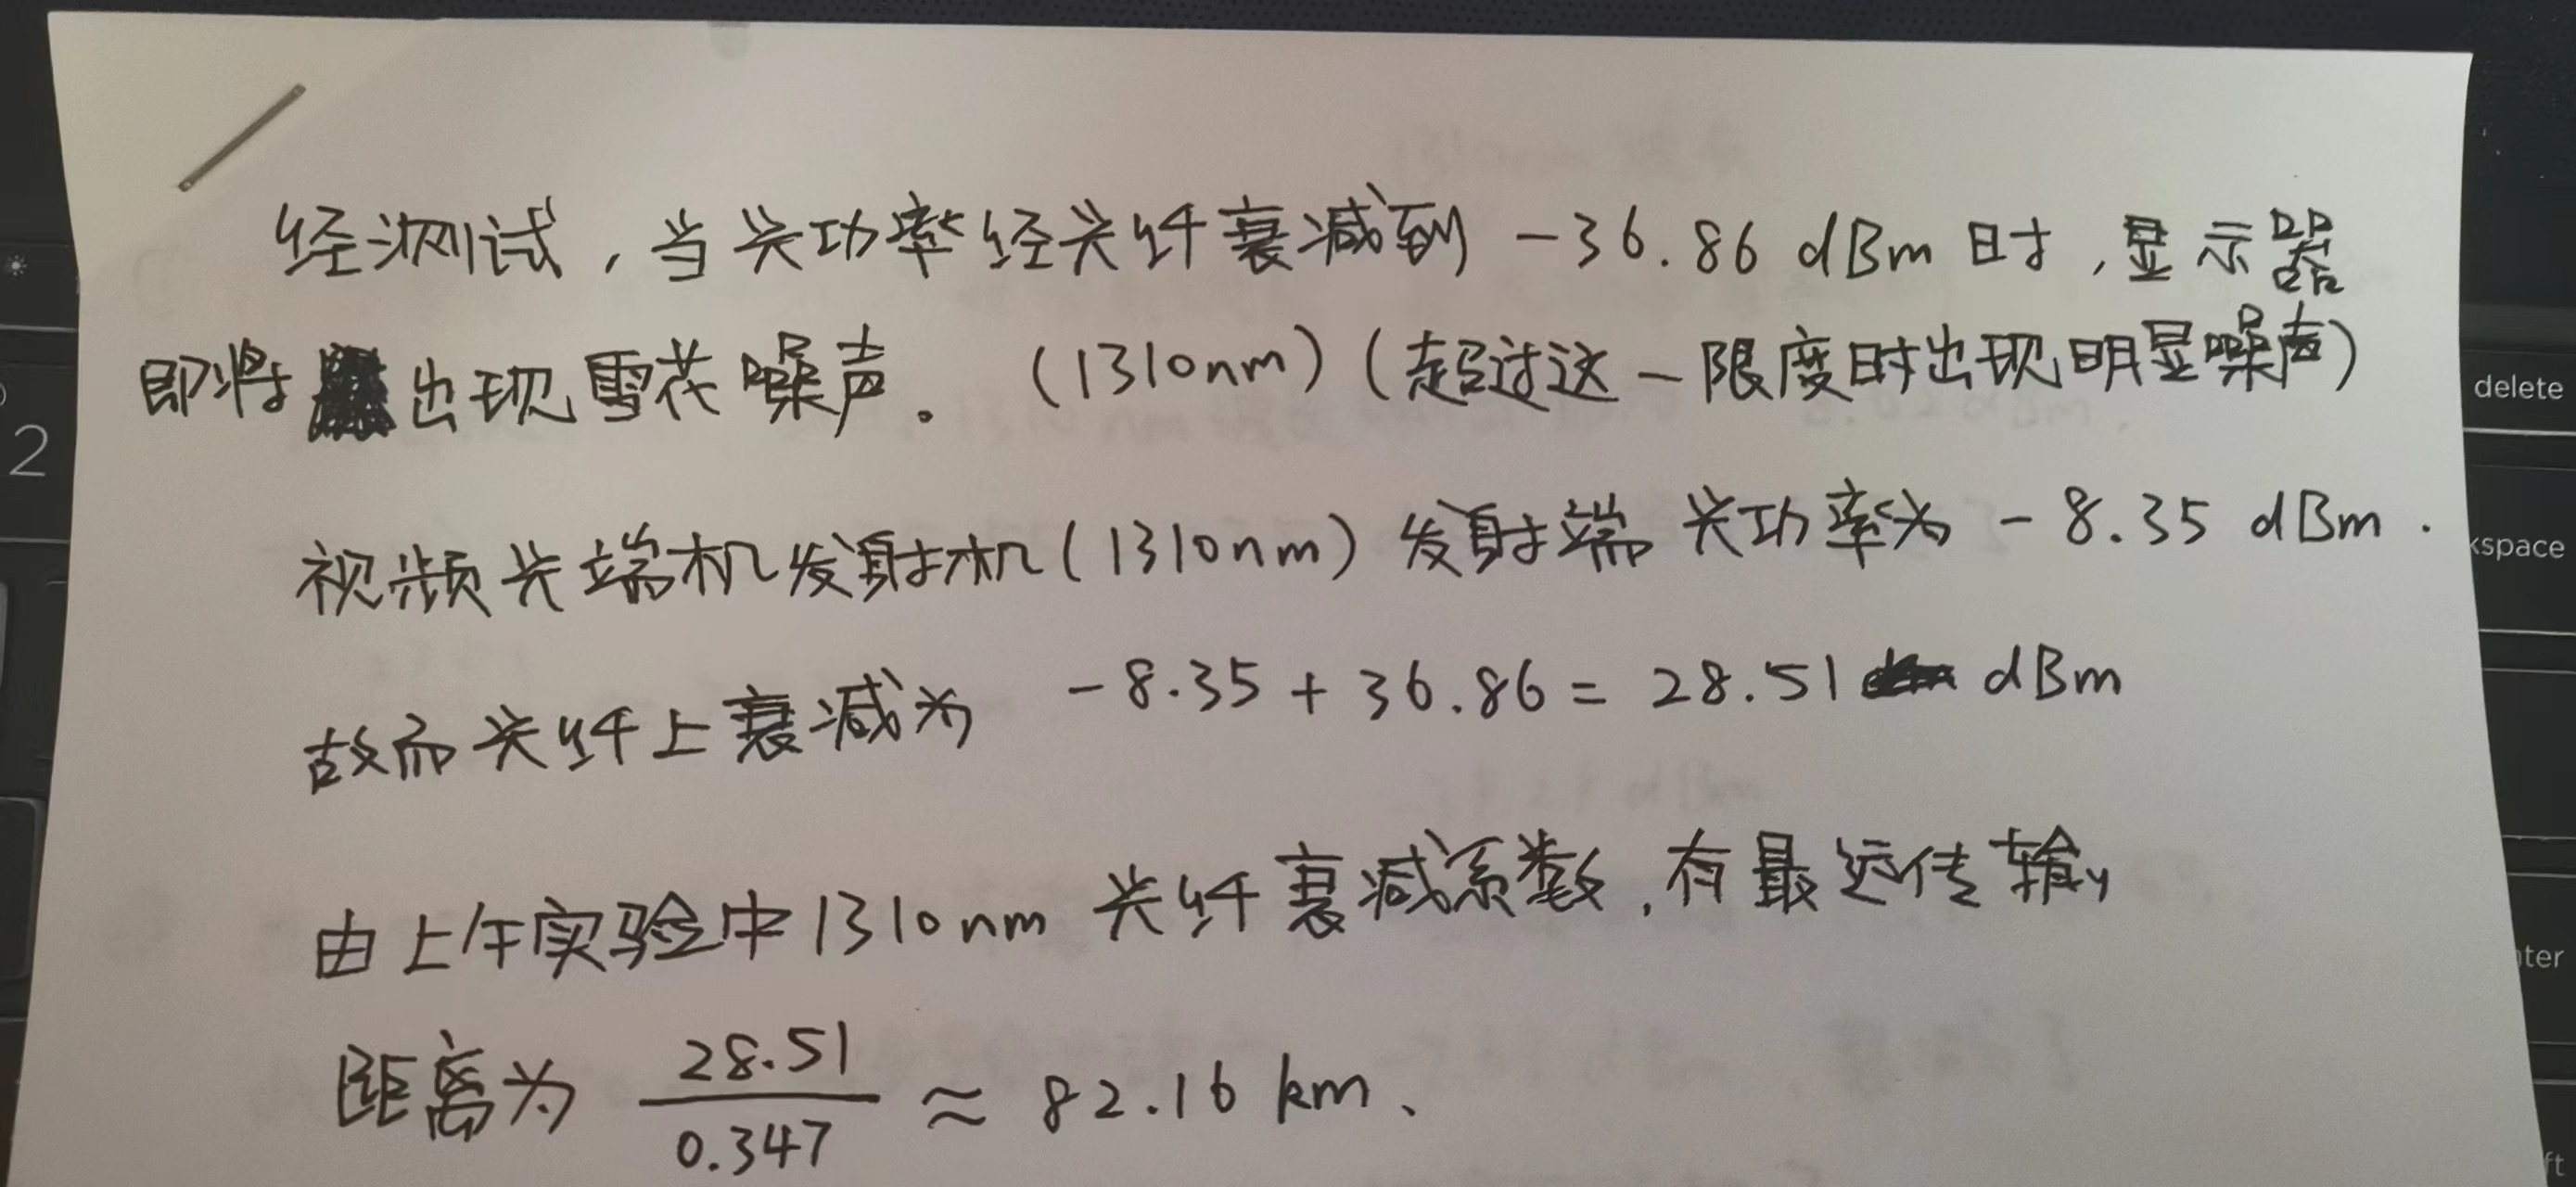 经测试，当光功率经光纤衰减到 -36.86 dBm 时，显示器
即将出现雪花噪声。（1310nm）（超过这一限度时出现明显噪声）
视频光端机发射机（1310nm）发射端光功率为 -8.35 dBm.
故而光纤上衰减为 -8.35 + 36.86 = 28.51 dBm
由上午实验中1310nm 光纤衰减系数，有最远传输
距离为 28.51 / 0.347 ≈ 82.16 km、
2
delete
kspace
ter
ft